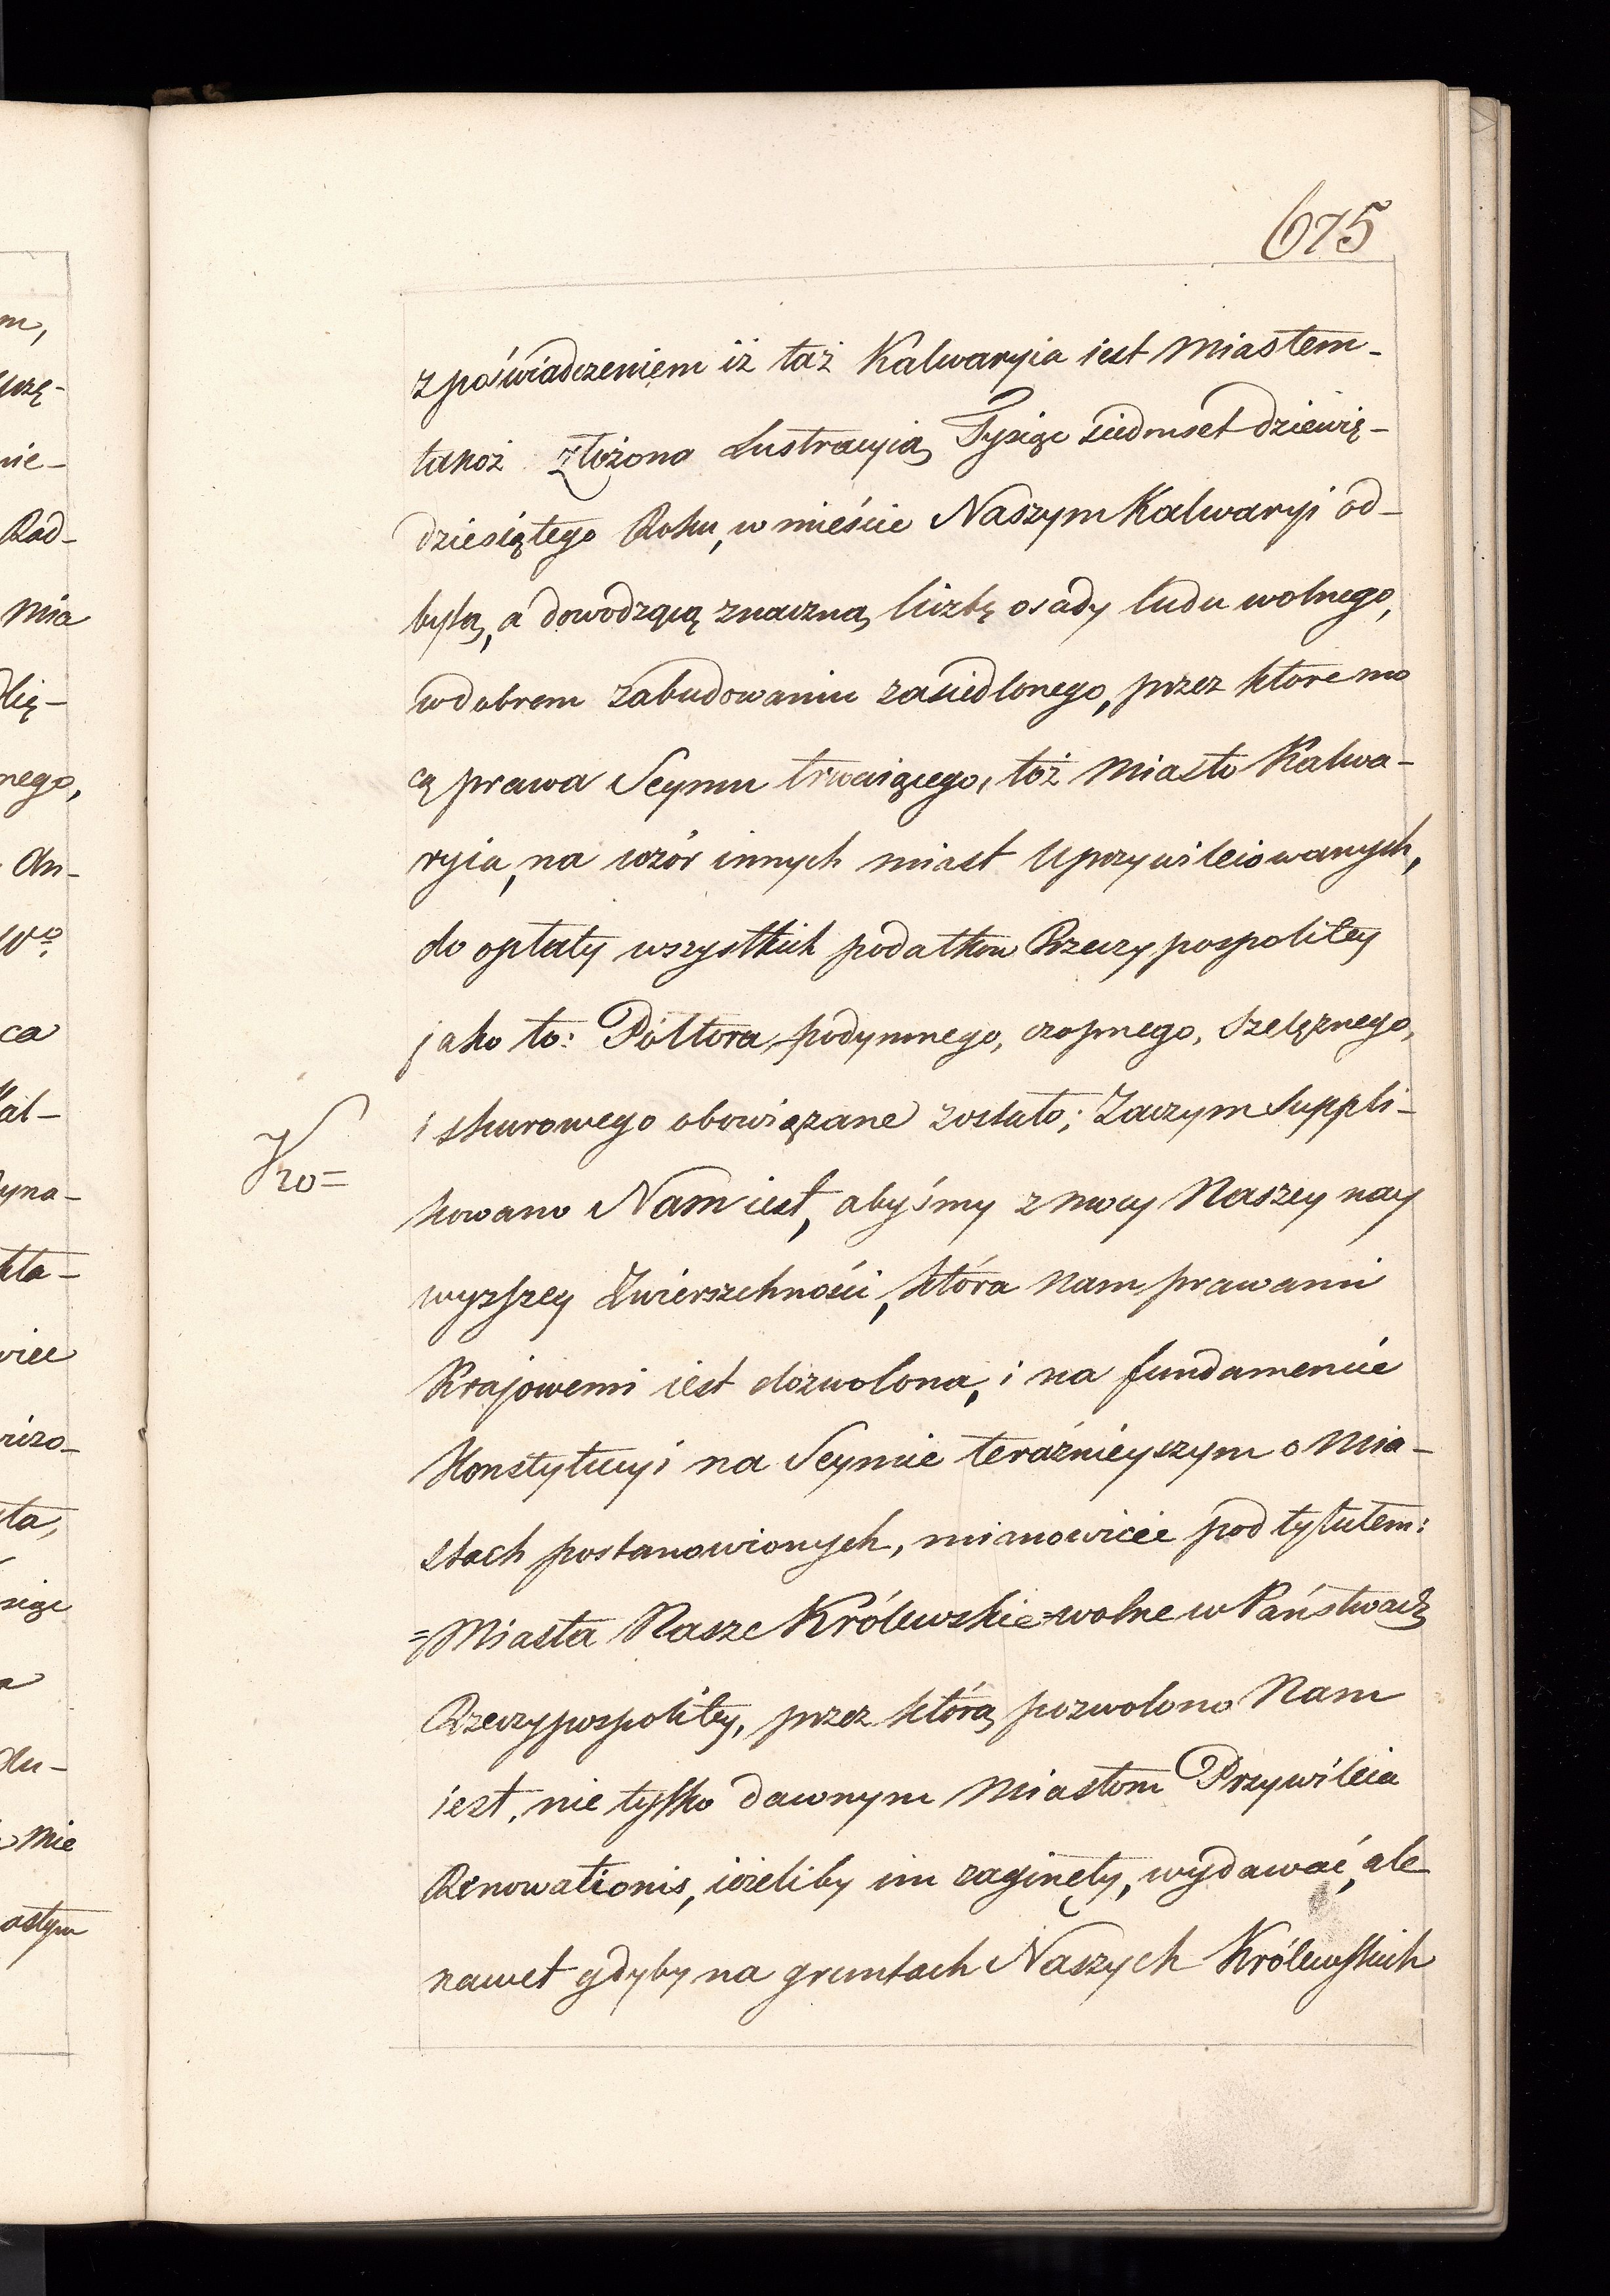 675
z poświadczeniem iż taż Kalwaryia iest Miastem –
takoż złożona Lustracyią Tysiąc siedmset dziewię-
dziesiątego Roku, w mieście Naszym Kalwaryi od-
bytą, a dowodzącą znaczną liczbę osady ludu wolnego,
w dobrem zabudowaniu zasiedlonego, przez które mo
cą prawa Seymu trwaiącego, toż Miasto Kalwa-
ryia, na wzór innych miast Uprzywileiowanych,
do opłaty wszystkich podatkow Rzeczypospolitey
jako to: Półtora podymnego, czopnego, szelężnego,
i skurowego obowiązane zostało; Zaczym Suppli-
kowano Nam iest, abyśmy z mocy Naszey nay
wyzszey Zwierszchności, która nam prawami
Krajowemi iest dozwolona, i na fundamencie
Konstytucyi na Seymie teraźnieyszym o Mia-
stach postanowionych, mianowicie pod tytułem:
=Miasta Nasze Królewskie=wolne w Państwach
Rzeczypospolitey, przez którą pozwolono Nam
iest, nie tylko dawnym Miastom Przywileia
Renowationis, ieżeliby im zaginęły, wydawać, ale
nawet gdyby na gruntach Naszych Królewskich
m,
nie-
Rad-
Mia
nego,
ca
Kal-
yna-
Mie
astym